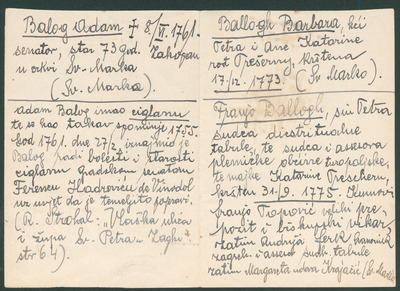 Balog Adam † 8/VI. 1761.
senator, star 73 god. Zakopan
u crkvi Sv. Marka
(Sv. Marko)
Adam Balog imao ciglarnu
te se kao takav spominje 1755.
God 1761. dne 27/2. iznajmio je
Balog radi bolesti i starosti
ciglarnu gradskom senatoru
Ferencu Hadrovicu de Vinsdol
uz uvjet da je temeljito popravi.
(R. Strohal: "Vlaška ulica
i župa Sv. Petra - Zagreb"
str 64).
Ballogh Barbara, kći
Petra i Ane Katarine
rod krštena
17. 12. 1773. (Sv. Marko).
Franjo Ballogh, sin Petra
sudca
tabule, te sudca i asesora
plemićke općine turopoljske,
te majke Katarine
kršten 31. 9. 1775. Kumovi
Franjo Popović veliki pre-
pozit i biskupski vikar
zatim kanonik
zagreb. i asesor sudb. tabule
zatim Margareta udova (Sv. Marko)